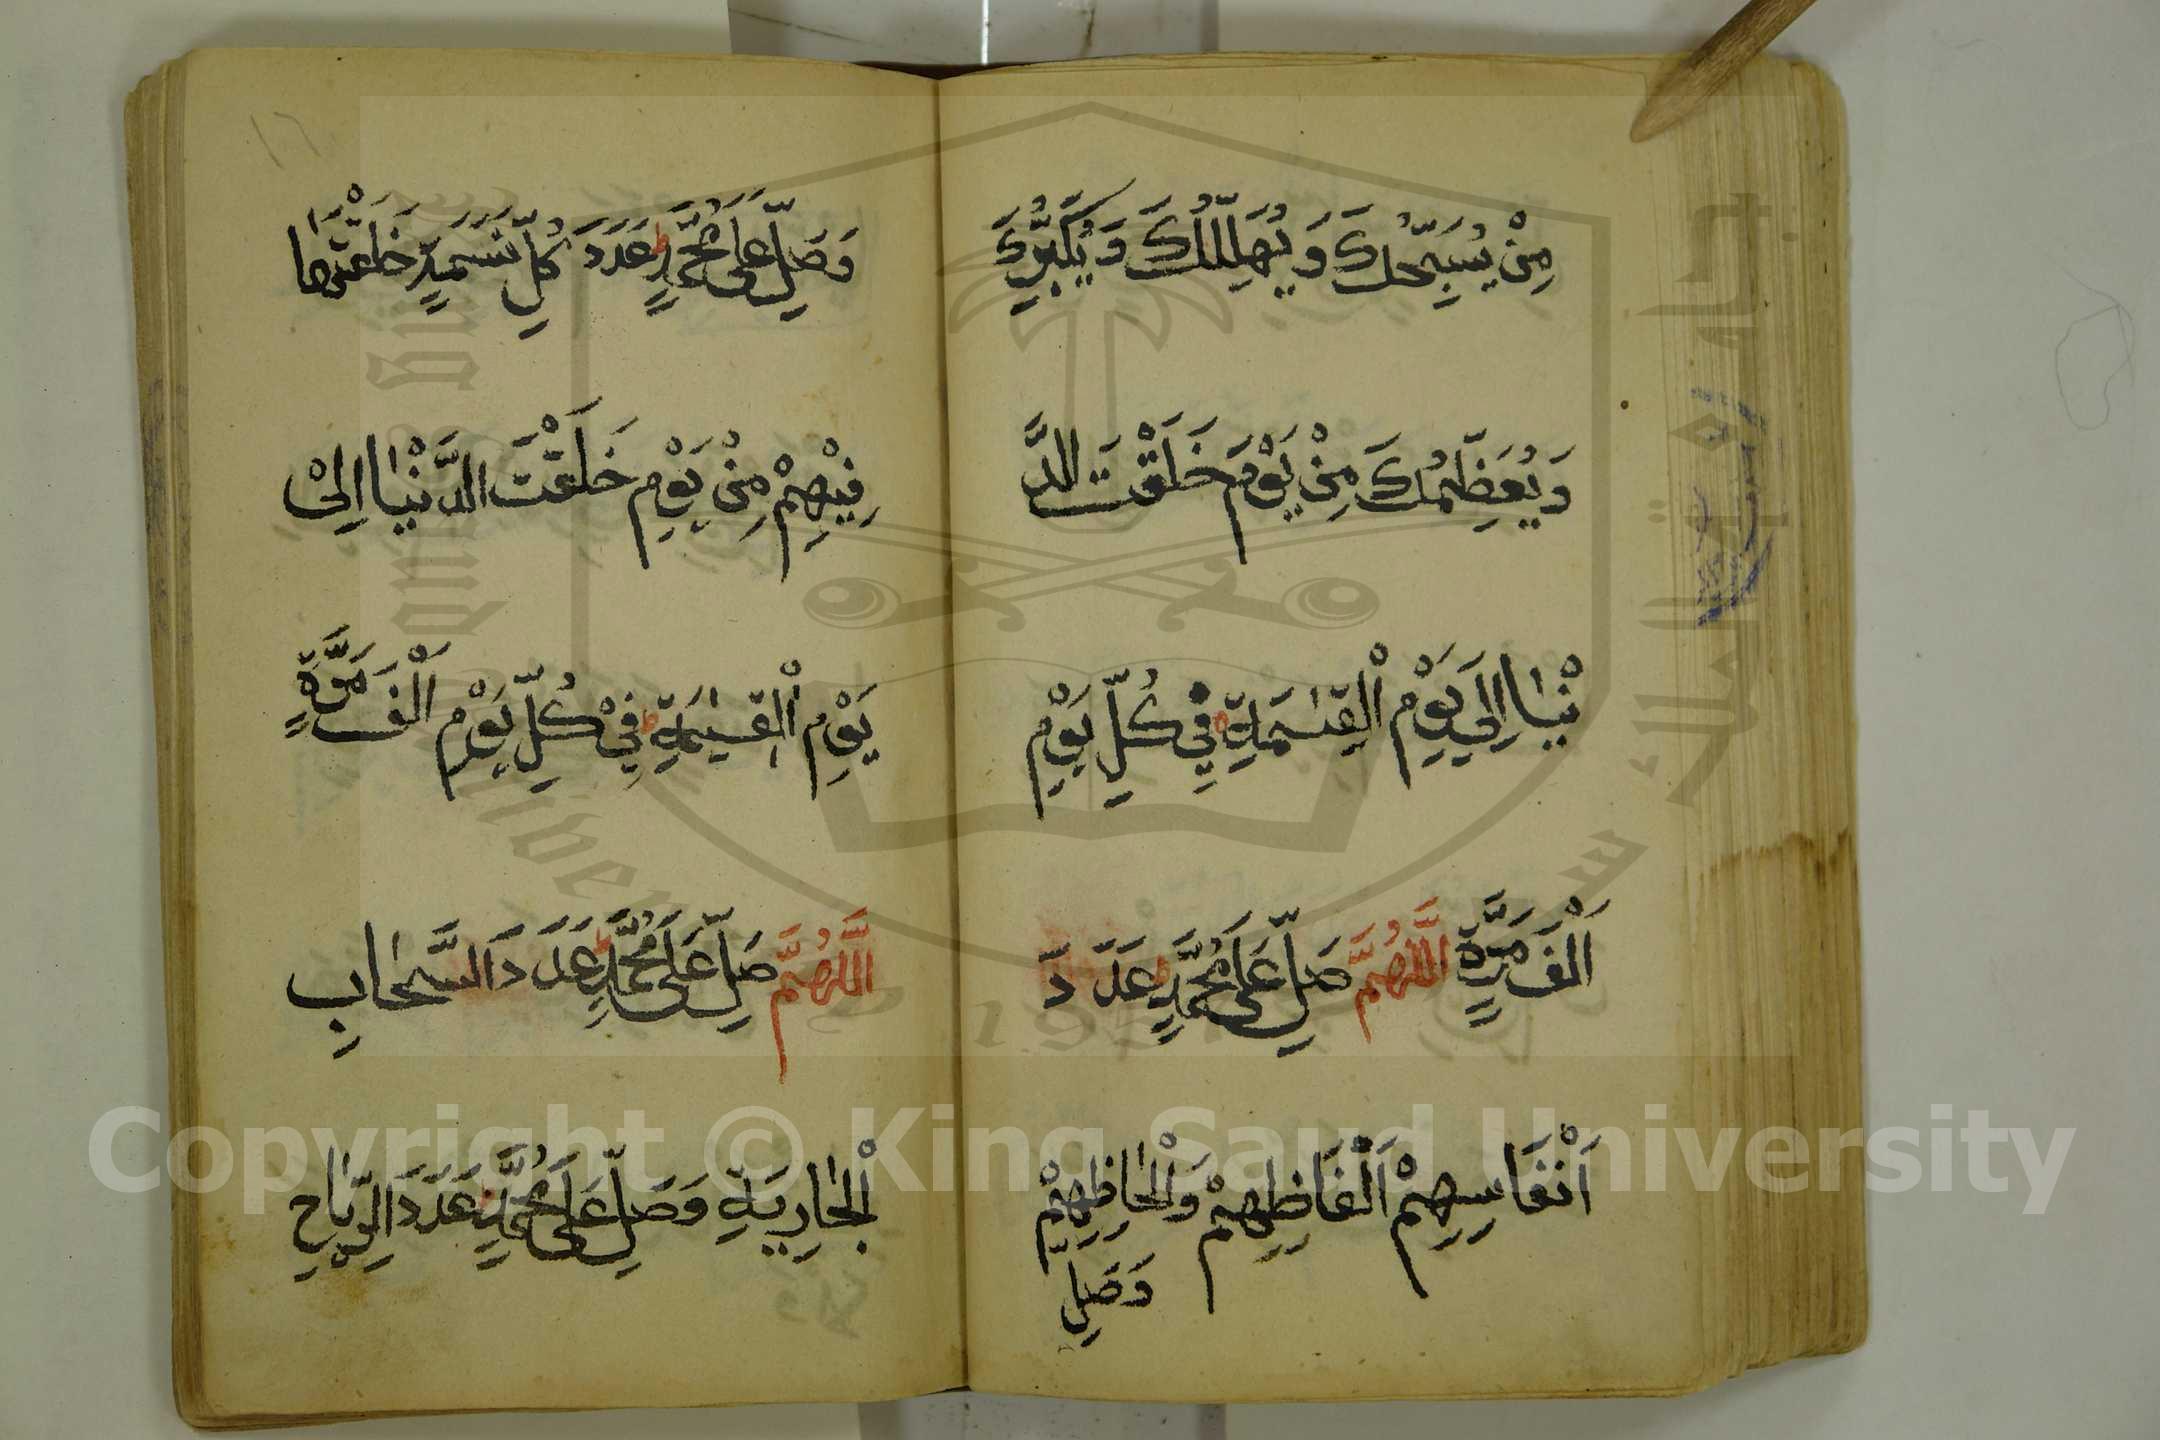 مِنْ يُسَبِّحُكَ وَيُهَلِّلُكَ وَيُكَبِّرُكَ
وَيُعَظِّمُكَ مِنْ يَوْمَ خَلَقْتَ الدُّ
نْيَا اِلَى يَوْمِ الْقِيٰمَةِ فِي كُلِّ يَوْمٍ
اَلْفَ مَرَّةٍ اَللّٰهُمَّ صَلِّ عَلَى مُحَمَّدٍ عَدَدَ
اَنْفَاسِهِمْ اَلْفَاظِهِمْ وَلْحَاظِهِمْ
وَصَلِّ
١٦
وَصَلِّ عَلَى مُحَمَّدٍ عَدَدَ كُلِّ نَسَمَةٍ خَلَقْتَهَا
فِيْهِمْ مِنْ يَوْمِ خَلَقْتَ الدُّنْيَا اِلىْ
يَوْمِ الْقِيٰمَةِ فِيْ كُلِّ يَوْمٍ اَلْفَ مَرَّةٍ
اَللّٰهُمَّ صَلِّ عَلَى مُحَمَّدٍ عَدَدَ السَّحَابِ
الْجَارِيَةِ وَصَلِّ عَلَى مُحَمَّدٍ عَدَدَ الرِّيَاحِ
Copyright © King Saud University